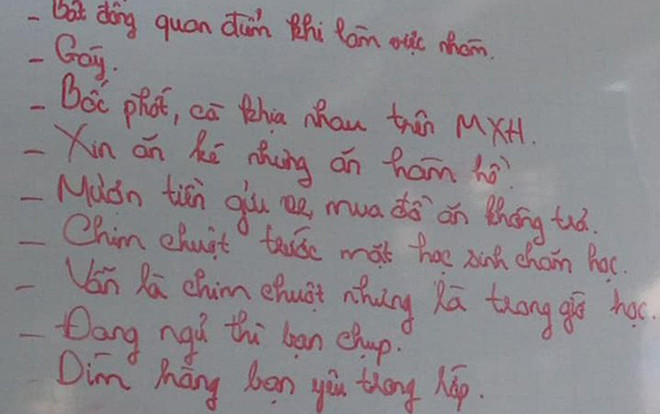 - Bất đồng quan điểm khi làm việc nhóm.
- Gãy.
- Bốc phốt, cà khịa nhau trên MXH.
- Xin ăn ké nhưng ăn hàm hồ.
- Mượn tiền gửi xe, mua đồ ăn không trả.
- Chim chuột trước mặt học sinh chăm học.
- Vẫn là chim chuột nhưng là trong giờ học.
- Đang ngủ thì bạn chụp.
- Dìm hàng bạn yêu trong lớp.